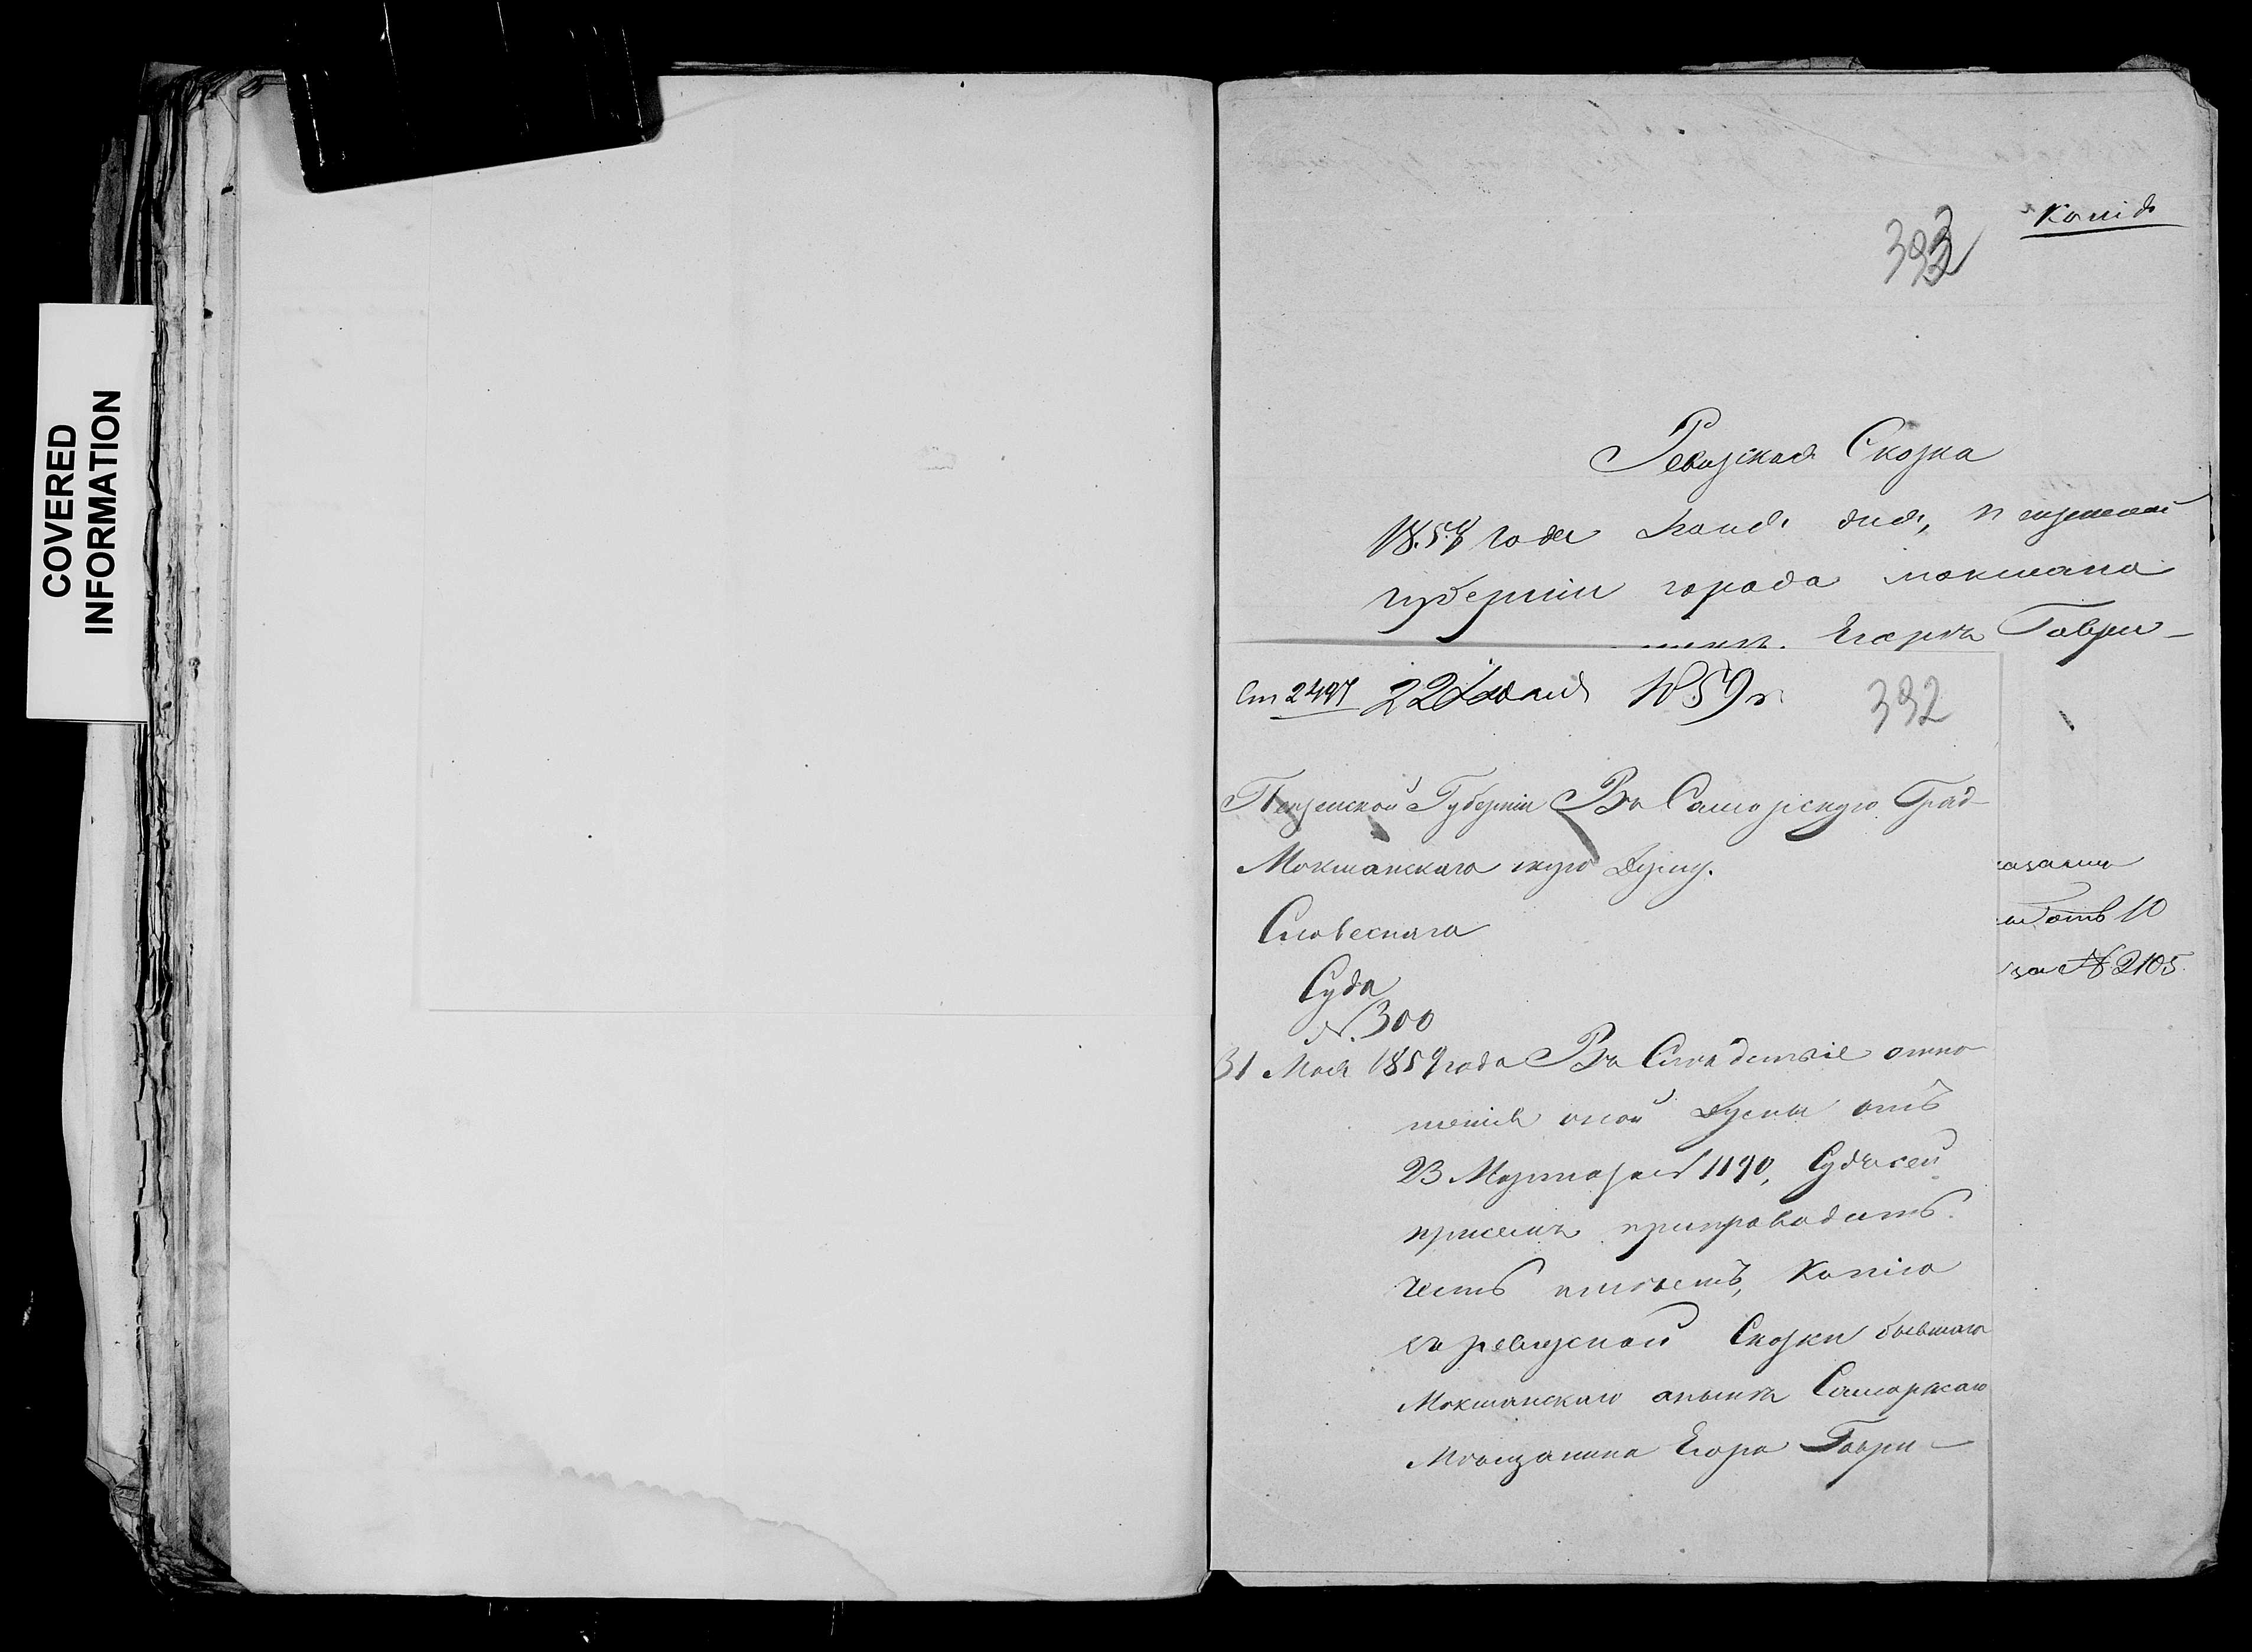 COVERED
INFORMATION
Копія
393
Ревизская Сказка
1858 года Іюня дня, Пензенской
губерніи города Мокшана
Егоръ Гаври-
Ст 2497 22 Іюня 1859 г.
392
Пензенской Губерніи Въ Самарскую Град-
Мокшанскаго скую Думу.
Словеснаго
Суда
№ 300
31 Мая 1859 года Въ Слѣдствіе отно-
шенія оной Думы отъ
23 Марта за № 1190, Судъ сей
присемъ припроводить
честь имѣетъ, Копію
съ ревизской Сказки бывшаго
Мокшанскаго а нынѣ Самарскаго
Мѣщанина Егора Гаври-
отъ 10
за № 2105